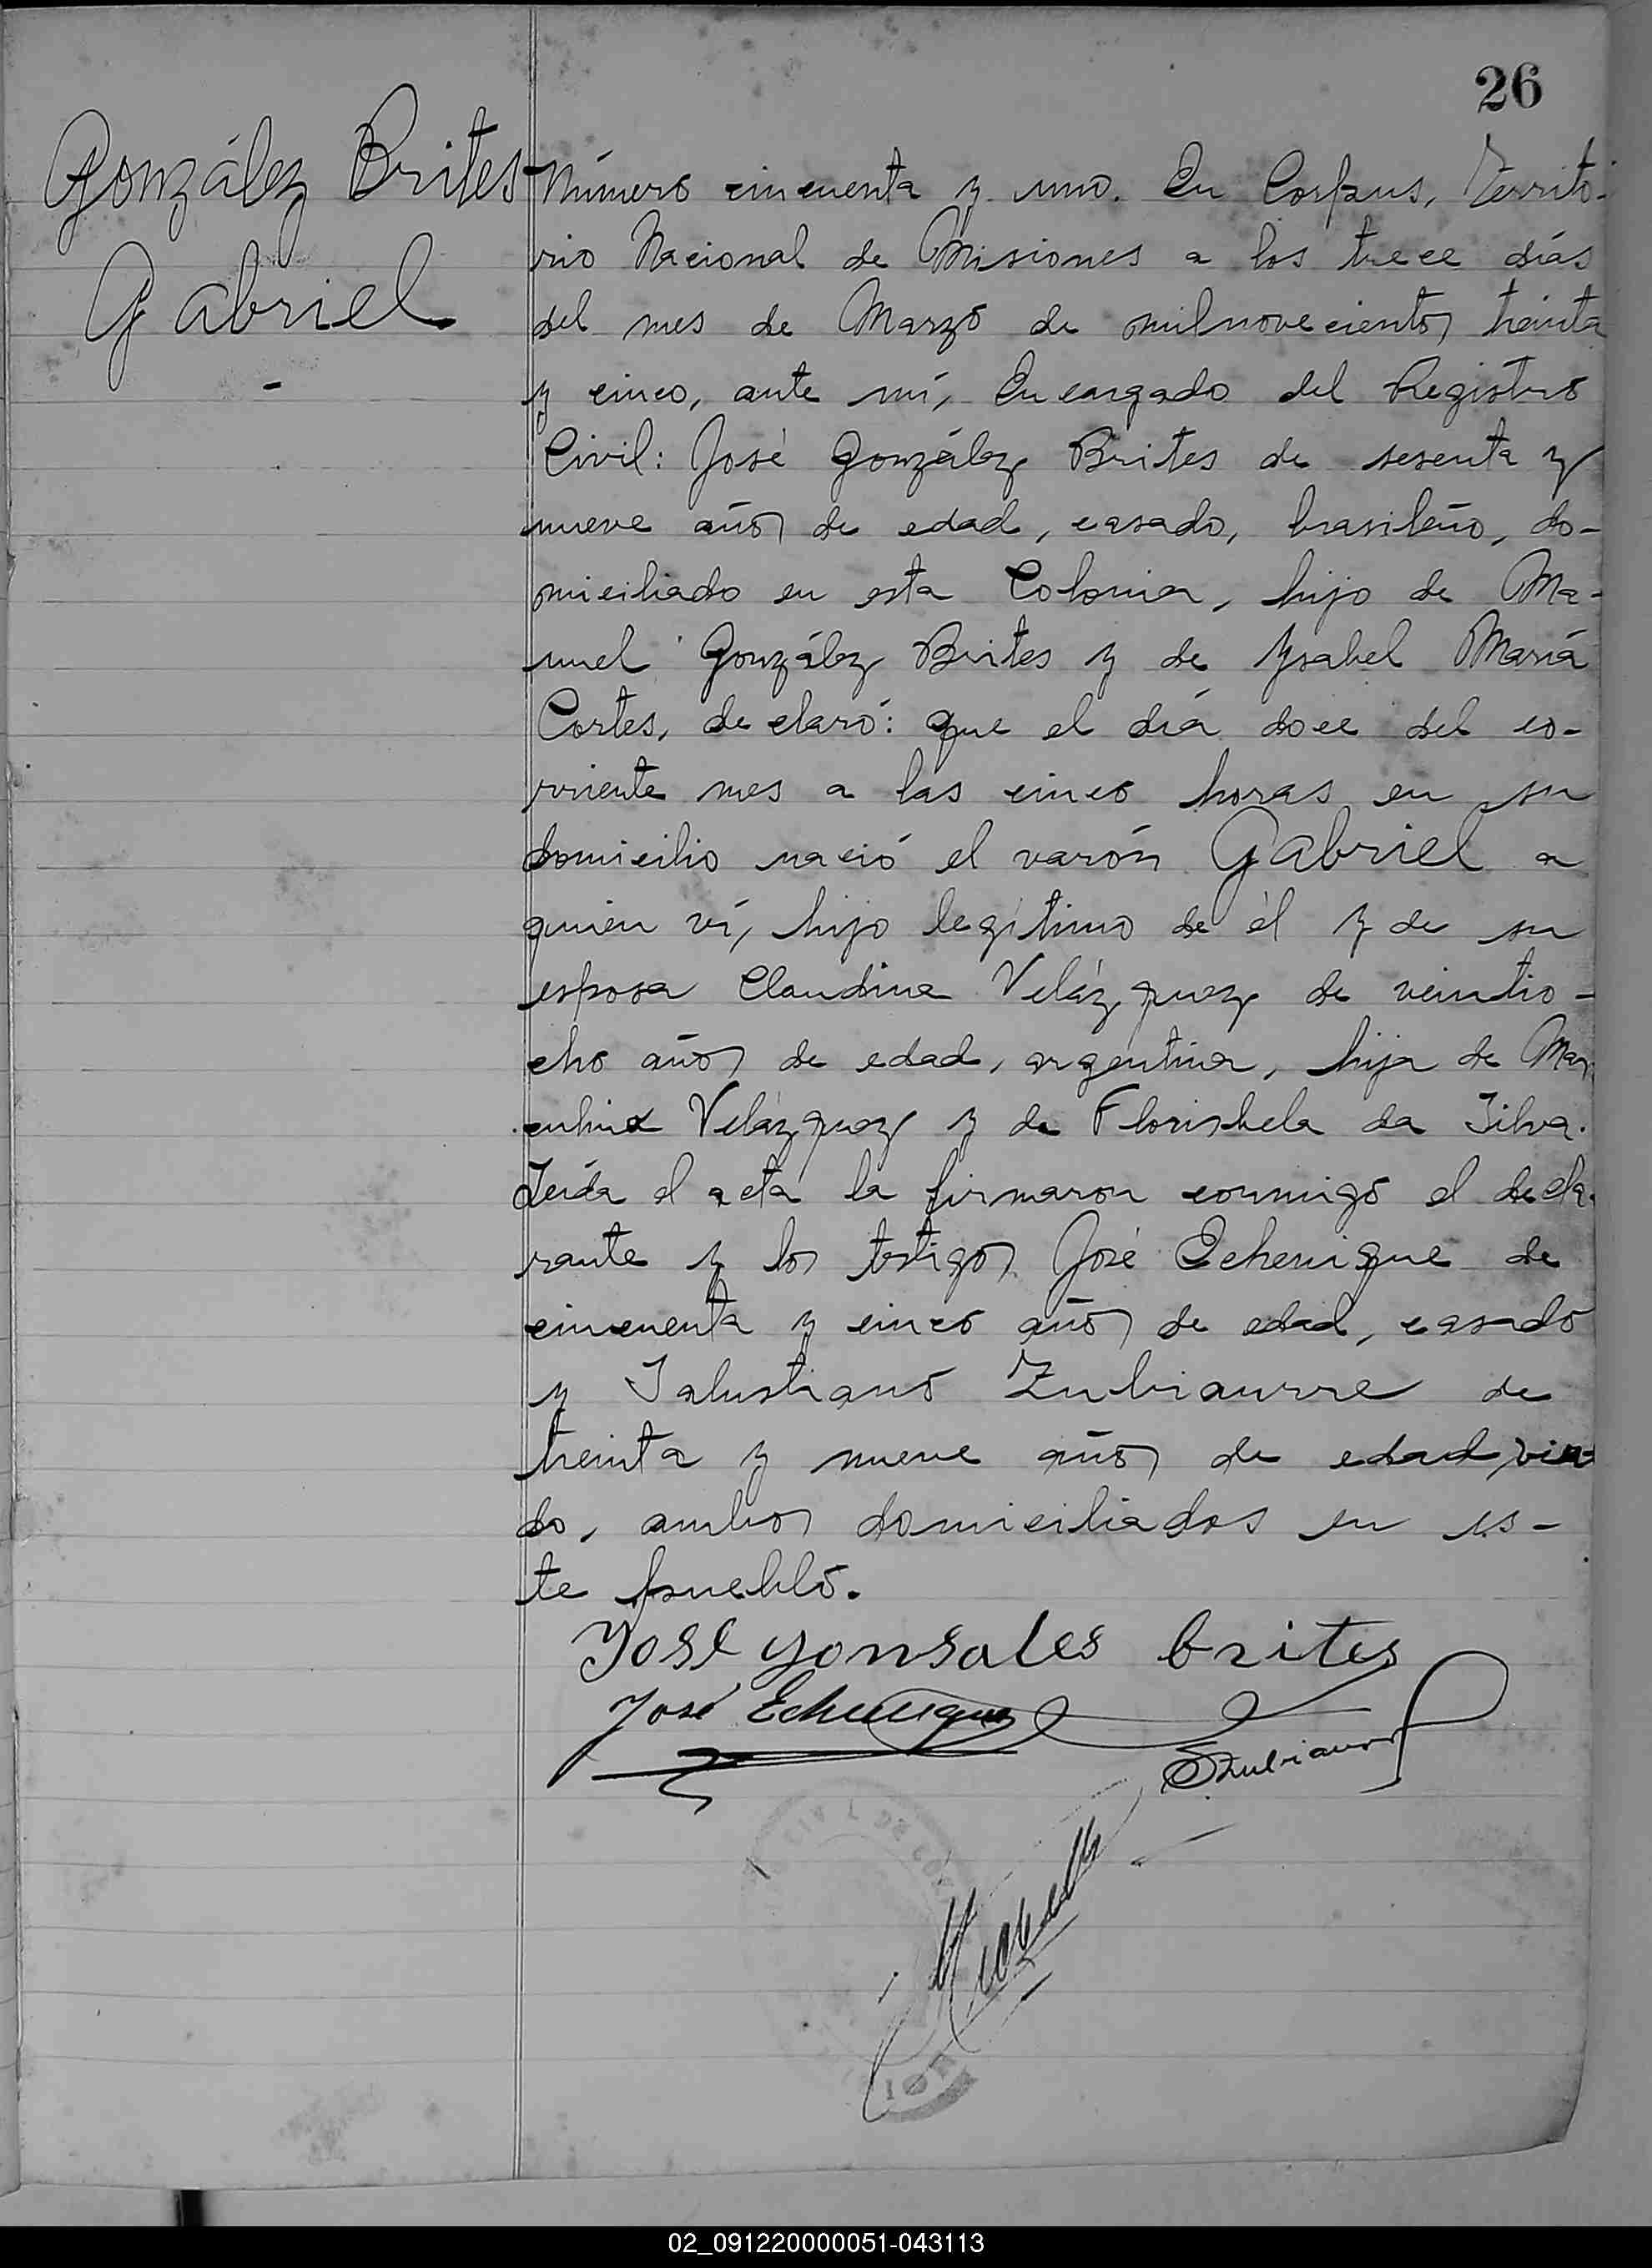 26
González Brites
Gabriel
-
Número cincuenta y uno. En Corpus, Territo-
rio Nacional de Misiones a los trece días
del mes de Marzo de milnovecientos treinta
y cinco, ante mí, Encargado del Registro
Civil: José González Brites de sesenta y
nueve años de edad, casado, brasileño, do-
miciliado en esta Colonia, hijo de Ma-
nuel González Brites y de Ysabel María
Cortes, declaró: que el día doce del co-
rriente mes a las cinco horas en su
domicilio nació el varón Gabriel a
quien ví, hijo legítimo de él y de su
esposa Claudina Velázquez de veintio-
cho años de edad, argentina, hija de
Velázquez y de da Silva.
Leída el acta la firmaron conmigo el decla-
rante y los testigos José Echenique de
cincuenta y cinco años de edad, casado
y Salustiano Zubiaurre de
treinta y nueve años de edad, viu-
do, ambos domiciliados en es-
te pueblo.
José gonsales brites
José Echenique
SZubiaurre
CIVIL DE COR
02_091220000051-043113